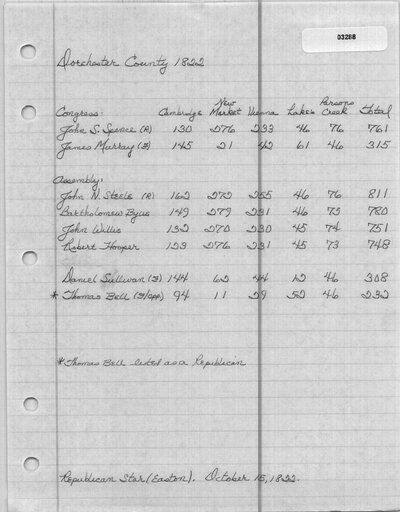 03288
Dorchester County 1822
New Parsons
Congress: Cambridge Market Vienna Lakes Creek Total
John S. Spence (R) 130 276 233 46 76 761
James Murray (F) 145 21 42 61 46 315
Assembly:
John N. Steele (R) 162 272 255 46 76 811
Bartholomew Byus 149 279 231 46 75 780
John Willis 132 270 230 45 74 751
Robert Hooper 123 276 231 45 73 748
Daniel Sullivan (F) 144 62 44 12 46 308
* Thomas Bell (F/opp) 94 11 29 52 46 232
*Thomas Bell listed as a Republican
Republican Star (Easton). October 15, 1822.